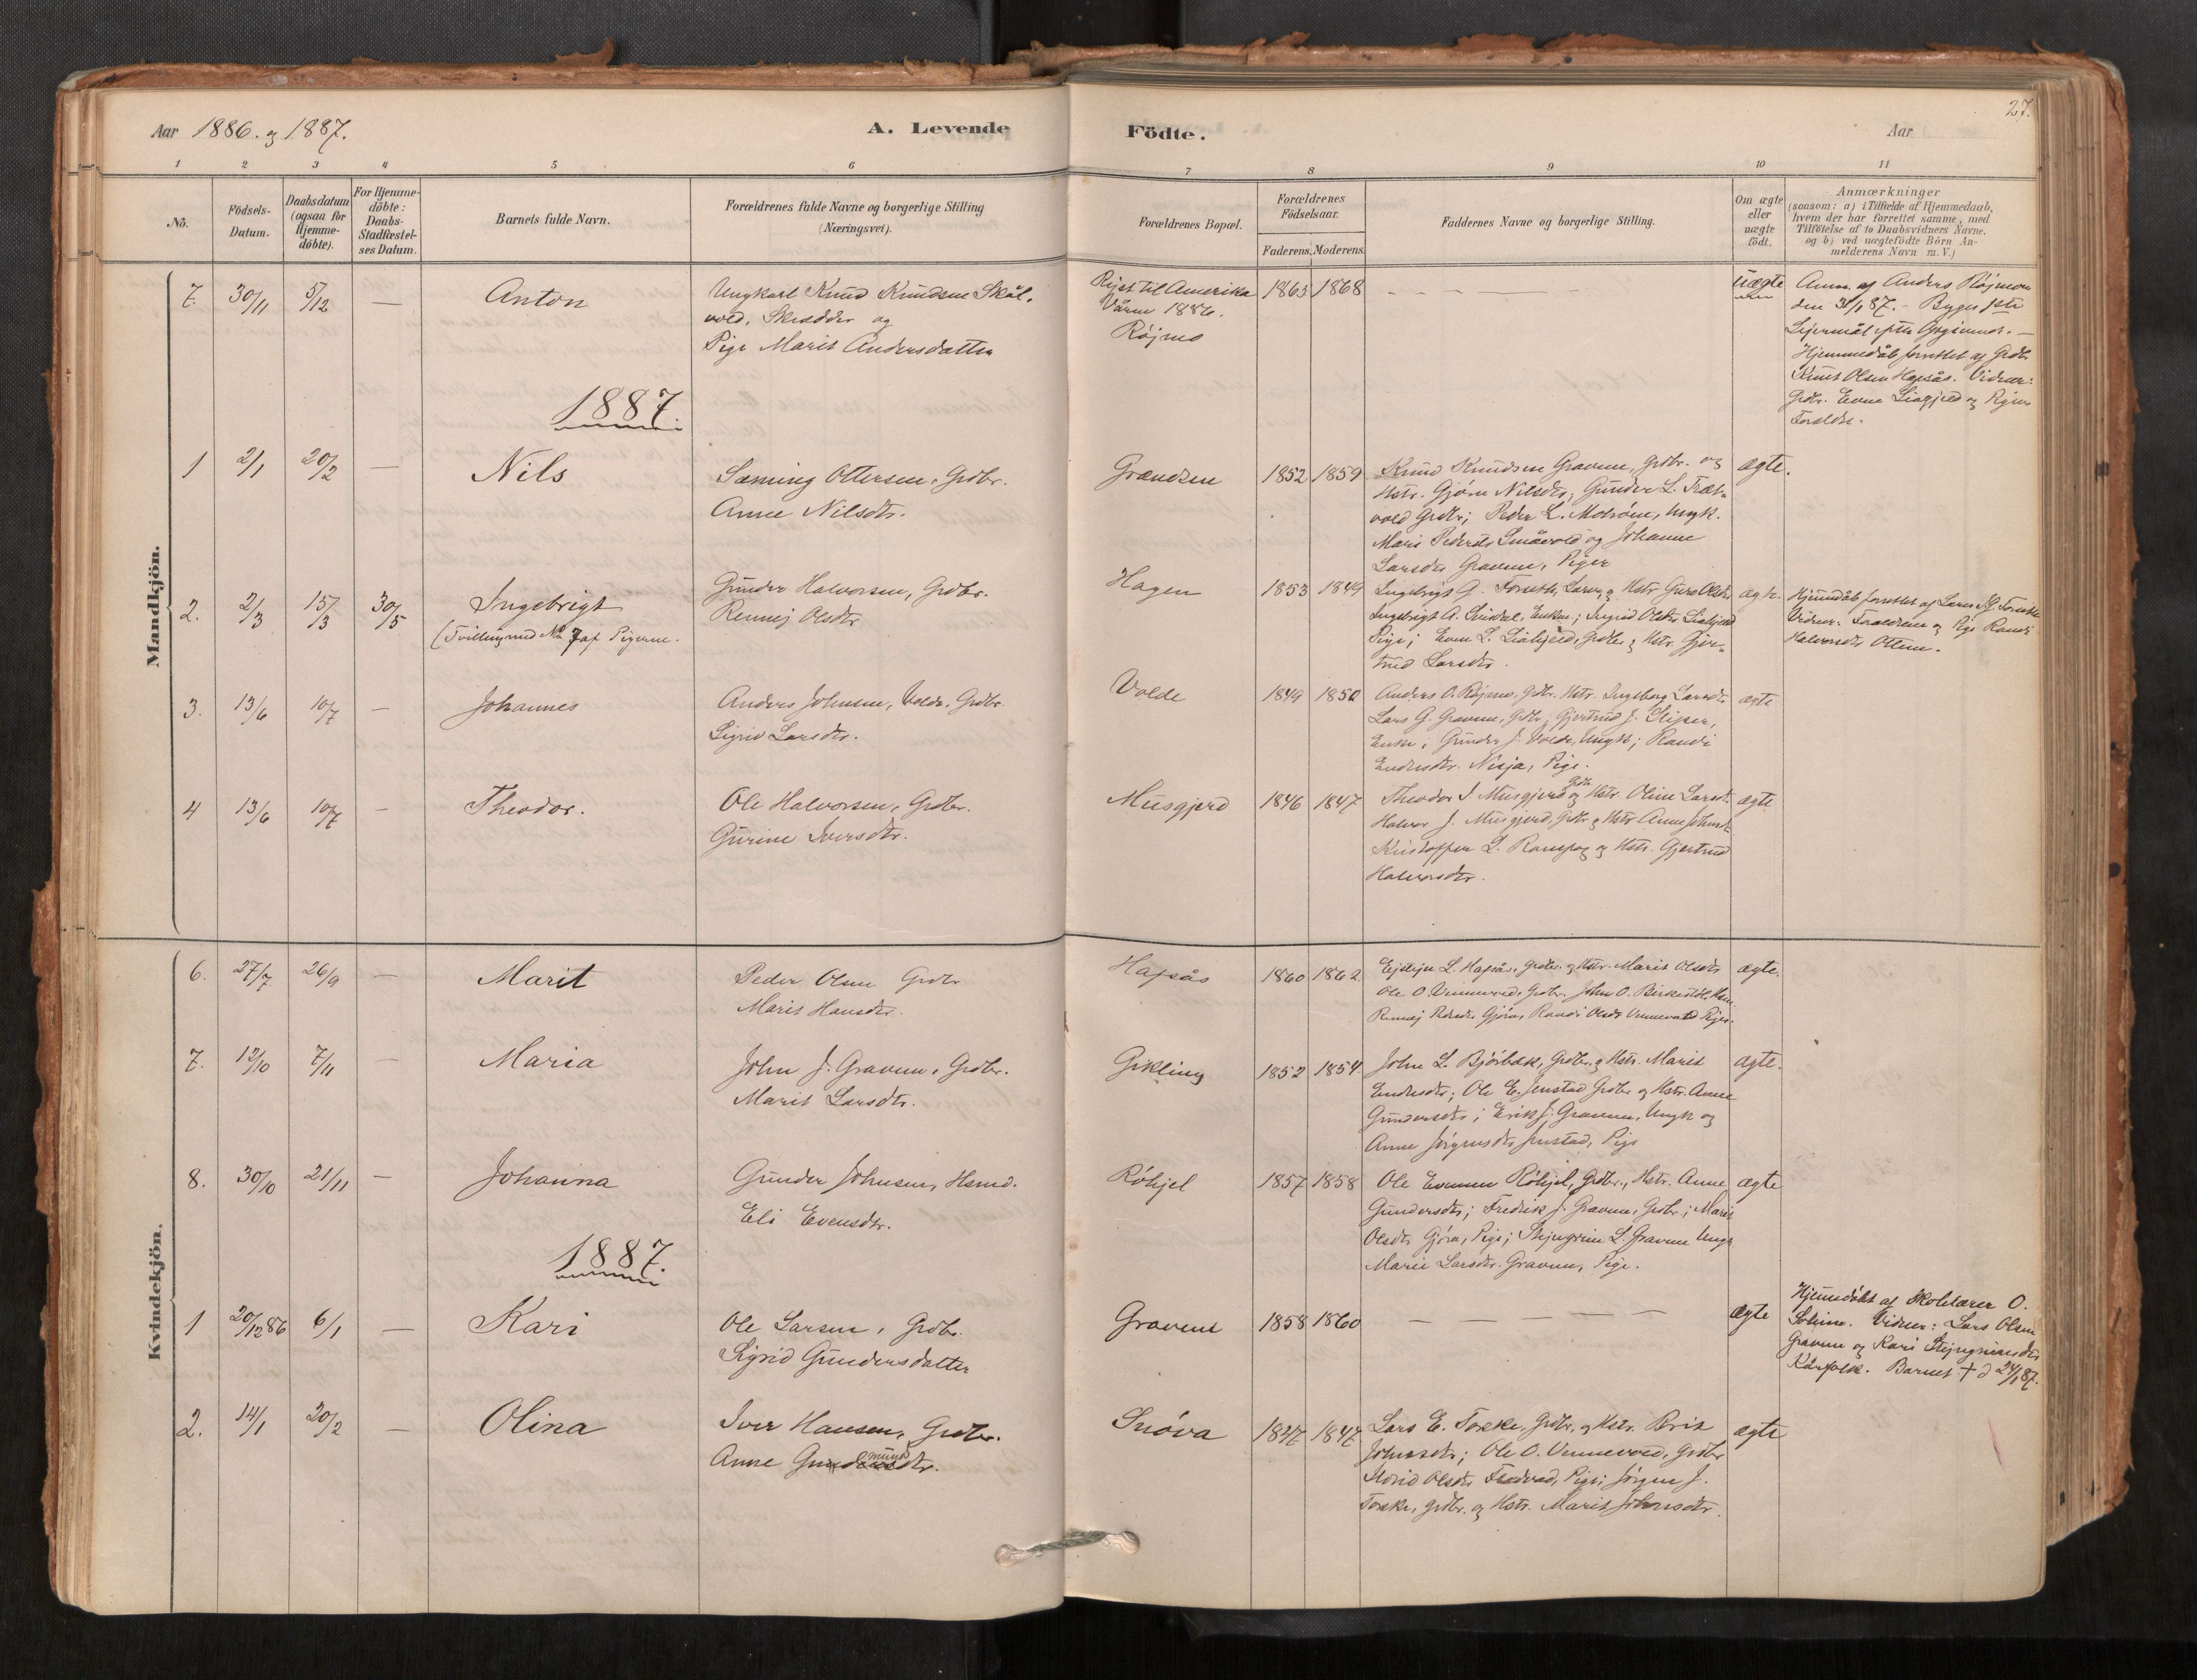 Aar 1886. og 1887.
A. Levende
Födte.
Aar
27.
1 2 3 4 5 6 7 8 9 10 11
No.
Födsels-
Datum.
Daabsdatum
(ogsaa for
Hjemme-
döbte).
For Hjemme-
döbte:
Daabs-
Stadfæstel-
ses Datum.
Barnets fulde Navn.
Forældrenes fulde Navne og borgerlige Stilling
(Næringsvei).
Forældrenes Bopæl.
Forældrenes
Födselsaar.
Faderens. Moderens.
Faddernes Navne og borgerlige Stilling.
Om ægte
eller
uægte
födt.
Anmærkninger
(saasom: a) i Tilfælde af Hjemmedaab,
hvem der har forrettet samme, med
Tilföielse af to Daabsvidners Navne.
og b) ved uægtefödte Börn An-
melderens Navn m. V.)
Mandkjön.
7. 30/11 5/12 — Anton
Ungkarl Knud Knudsen Skål-
vold, Skrædder og
Pige Marit Andersdatter
Rejst til Amerika
Våren 1886.
Röjmo
1863 1868
— — — — —
uægte
Anm. af Anders Röjmo
den 31/1 87. - Byges 1ste
Lejermål efter Opgivende. —
Hjemmedåb forrettet af Grdbr.
Knut Olsen Hafsås. Vidner:
Grdbr. Even Liagjeld og Pigens
Foreldre.
1887.
1 2/1 20/2 — Nils
Sæming Ottersen, Grdbr.
Anne Nilsdtr.
Grændsen
1852 1859
Knud Knudsen Gravem, Grdbr. og
Hstr. Gjöru Nilsdtr; Gunder L. Træt-
vold Grdbr; Peder L. Moröne, Ungk.
Mari Pedersdtr Småvold og Johanne
Larsdtr Gravem, Piger
ægte.
2. 2/3 15/3 30/5 Ingebrigt
(Tvilling med No 7 af Pigerne.
Gunder Halvorsen, Grdbr.
Rennej Olsdtr
Hagen
1853 1849
Ingebrigt G. Forseth, Lærer, og Hstr Guro Olsdtr
Ingebrigt A. Lindal, Enkem; Ingrid Olsdtr Liahjeld
Pige; Even L. Liahjeld, Grdbr. og Hstr. Gjer-
trud Larsdtr.
ægte.
Hjemmedåb forrettet af Lærer I. G. Forseth
Vidner: Forældrene og Pige Randi
Halvorsdtr Ottem.
3. 13/6 10/7 — Johannes
Anders Johnsen, Volde, Grdbr.
Sigrid Larsdtr.
Volde
1849 1850
Anders O. Röjmo, Grdbr. Hstr. Ingeborg Larsdtr
Lars G. Gravem, Grdbr, Gjertrud J.
Enke; Gunder J. Volde, Ungk; Randi
Endresdtr. Nisja, Pige.
ægte
4 13/6 10/7 — Theodor.
Ole Halvorsen, Grdbr.
Gurine Iversdtr.
Musgjerd
1846 1847
Theodor I. Musgjerd Grdbr og Hstr. Oline Larsdtr
Halvor J. Musgjerd, Grdbr og Hstr Anne Johnsdtr
Kristoffer L. Romfog og Hstr. Gjertrud
Halvorsdtr.
ægte
Kvindekjön.
6. 27/7 26/9 — Marit
Peder Olsen Grdbr
Marit Hansdtr.
Hafsås
1860 1862
Ejstejn L. Hafsås, Grdbr. og Hstr. Marit Olsdtr
Ole O. Vennevold, Grdbr. John O. Birkestöl, Hsm.
Rennej Pedersdtr Gjöra, Randi Olsdtr Vennevold Piger.
ægte.
7. 12/10 7/11 — Maria
John J. Gravem, Grdbr.
Marit Larsdtr.
Gikling
1852 1854
John L. Björbæk, Grdbr. og Hstr. Marit
Endresdtr; Ole E. Jenstad Grdbr og Hstr. Anne
Gundersdtr; Erik J. Gravem, Ungk og
Anne Jörgensdtr Jenstad, Pige
ægte.
8. 30/10 21/11 — Johanna
Gunder Johnsen, Hsmd.
Eli Evensdtr.
Röhjel
1857 1858
Ole Evensen Röhjel, Grdbr., Hstr. Anne
Gundersdtr; Fredrik J. Gravem, Grdbr; Marit
Olsdtr Gjöra, Pige; Stejngrim L. Gravem Ungk
Marit Larsdtr. Gravem, Pige.
ægte
1887.
1 20/12 86 6/1 — Kari
Ole Larsen, Grdbr.
Sigrid Gundersdatter
Gravem
1858 1860
— — — — —
ægte
Hjemdöbt af Skolelærer O.
Vidner: Lars Olsen
Gravem og Kari Stejngrimsdtr
Kårfolk. Barnet † d 24/1 87.
2. 14/1 20/2 — Olina
Iver Hansen, Grdbr.
Anne Gudmundsdtr.
Snöva
1847 1847
Lars E. Torske, Grdbr, og Hstr. Brit
Johnsdtr; Ole O. Vennevold, Grdbr
Olsdtr Fredvad, Pige; Jörgen J.
Torske, Grdbr. og Hstr. Marit Johnsdtr.
ægte